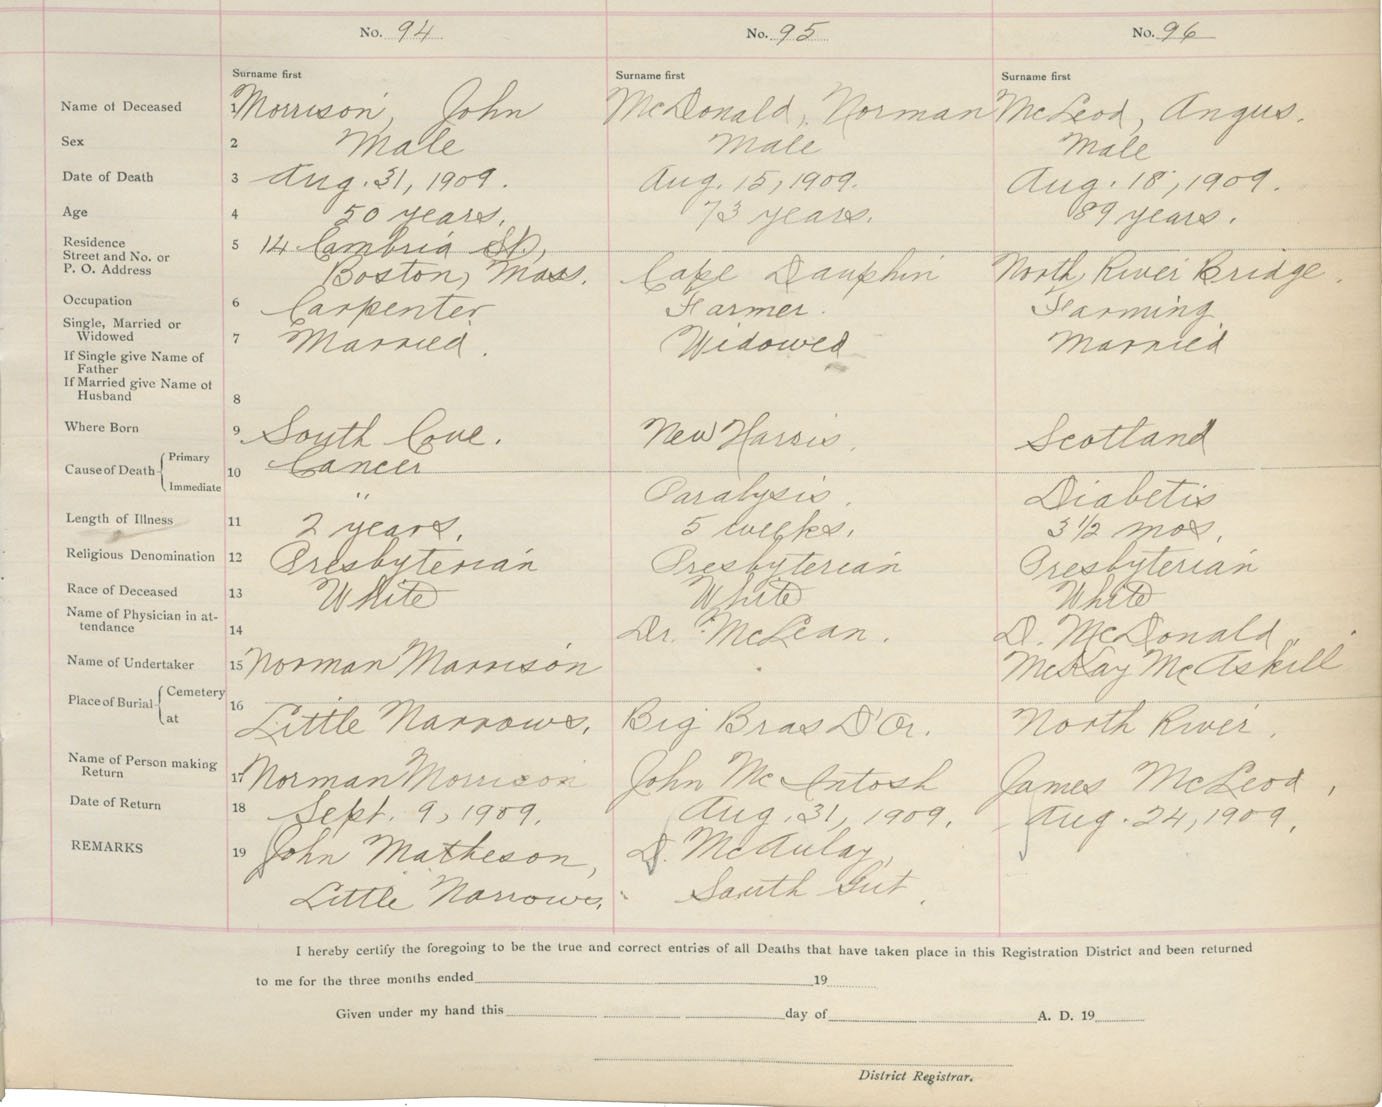 No. 94 No. 95 No. 96
Surname first Surname first Surname first
Name of Deceased 1 Morrison, John McDonald, Norman McLeod, Angus.
Sex 2 Male Male Male
Date of Death 3 Aug. 31, 1909. Aug. 15, 1909. Aug. 18, 1909.
Age 4 50 years. 73 years. 89 years.
Residence 5 14 Cambria St,
Street and No. or
P. O. Address Boston, Mass. Cape Dauphin North River Bridge.
Occupation 6 Carpenter Farmer. Farming
Single, Married or
Widowed 7 Married. Widowed Married
If Single give Name of
Father
If Married give Name of
Husband 8
Where Born 9 South Cove. New Harris. Scotland
Cause of Death Primary 10 Cancer
Immediate " Paralysis. Diabetis
Length of Illness 11 2 years. 5 weeks. 3 1/2 mos.
Religious Denomination 12 Presbyterian Presbyterian Presbyterian
Race of Deceased 13 White White White
Name of Physician in at-
tendance 14 Dr. McLean. D. McDonald.
Name of Undertaker 15 Norman Morrison McKay McAskill
Place of Burial Cemetery 16
at Little Narrows. Big Bras D'Or. North River.
Name of Person making
Return 17 Norman Morrison John McIntosh James McLeod.
Date of Return 18 Sept. 9, 1909. Aug. 31, 1909. Aug. 24, 1909.
REMARKS 19 John Matheson, D. McAulay,
Little Narrows. South Gut.
I hereby certify the foregoing to be the true and correct entries of all Deaths that have taken place in this Registration District and been returned
to me for the three months ended 19
Given under my hand this day of A. D. 19
District Registrar.